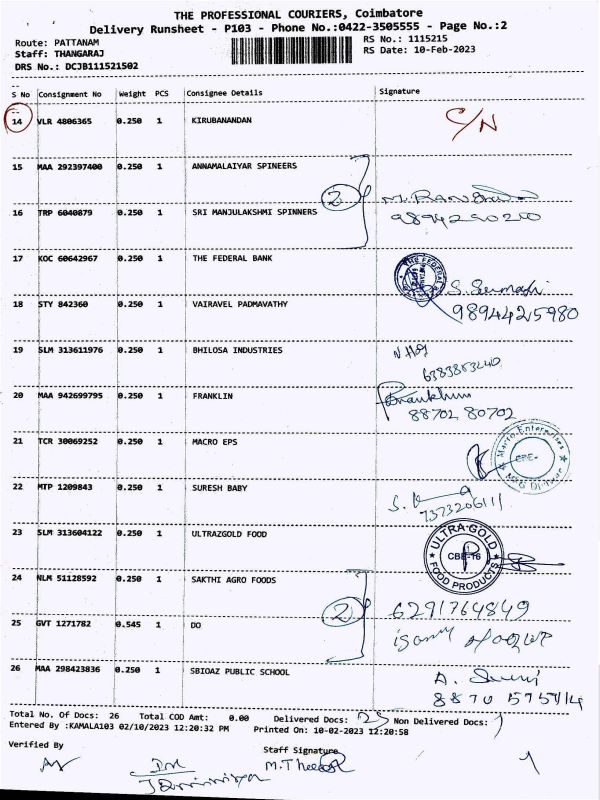 THE PROFESSIONAL COURIERS, Coimbatore
Delivery Runsheet - P103 - Phone No.:0422-3505555 - Page No.:2
Route: PATTANAM
RS No.: 1115215
Staff: THANGARAJ
RS Date: 10-Feb-2023
DRS No.: DCJB111521502
S No Consignment No Weight PCS Consignee Details Signature
14 VLR 4806365 0.250 1 KIRUBANANDAN C/N
15 MAA 292397400 0.250 1 ANNAMALAIYAR SPINEERS
2
16 TRP 6040879 0.250 1 SRI MANJULAKSHMI SPINNERS
9894290200
17 KOC 60642967 0.250 1 THE FEDERAL BANK
THE FEDERAL
S. Sumathi
18 STY 842360 0.250 1 VAIRAVEL PADMAVATHY
9894425980
19 SLM 313611976 0.250 1 BHILOSA INDUSTRIES
6383853240
20 MAA 942699795 0.250 1 FRANKLIN
Franklin
88702 80702
21 TCR 30069252 0.250 1 MACRO EPS
Macro Enterprises
CBE-
22 MTP 1209843 0.250 1 SURESH BABY
7373206111
23 SLM 313604122 0.250 1 ULTRAZGOLD FOOD
ULTRA GOLD
CBE-16
FOOD PRODUCTS
24 NLM 51128592 0.250 1 SAKTHI AGRO FOODS
2
6291764849
25 GVT 1271782 0.545 1 DO
26 MAA 298423836 0.250 1 SBIOAZ PUBLIC SCHOOL
8870 575414
Total No. Of Docs: 26 Total COD Amt: 0.00 Delivered Docs: 25 Non Delivered Docs: 1
Entered By :KAMALA103 02/10/2023 12:20:32 PM Printed On: 10-02-2023 12:20:58
Verified By
Staff Signature